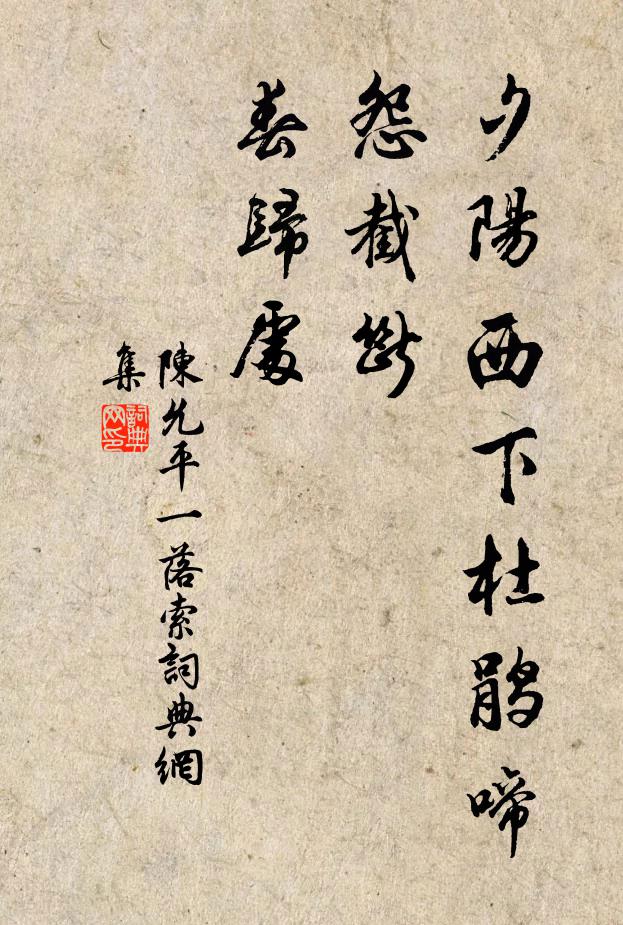 夕陽西下杜鵑啼
怨截斷
春歸處
陳允平一落索詞典網
集
詞典
网印